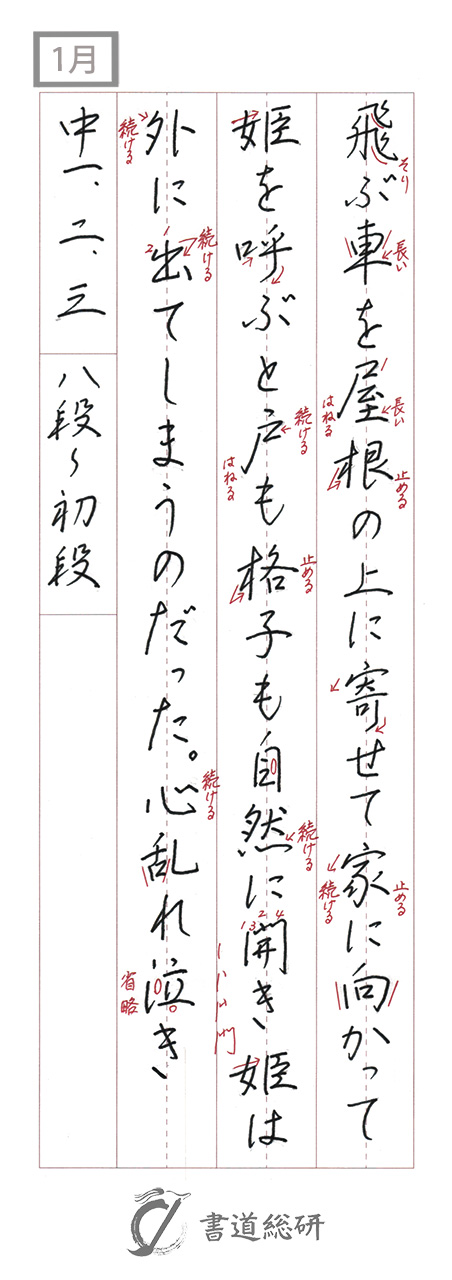 1月
飛ぶ車を屋根の上に寄せて家に向かって
そり
長い
長い
はねる
止める
止める
続ける
姫を呼ぶと戸も格子も自然に開き姫は
続ける
はねる
止める
続ける
1 3 2 4
外に出てしまうのだった。心乱れ泣き
続ける
続ける
1
2
続ける
省略
中一、二、三
八段〜初段
書道総研